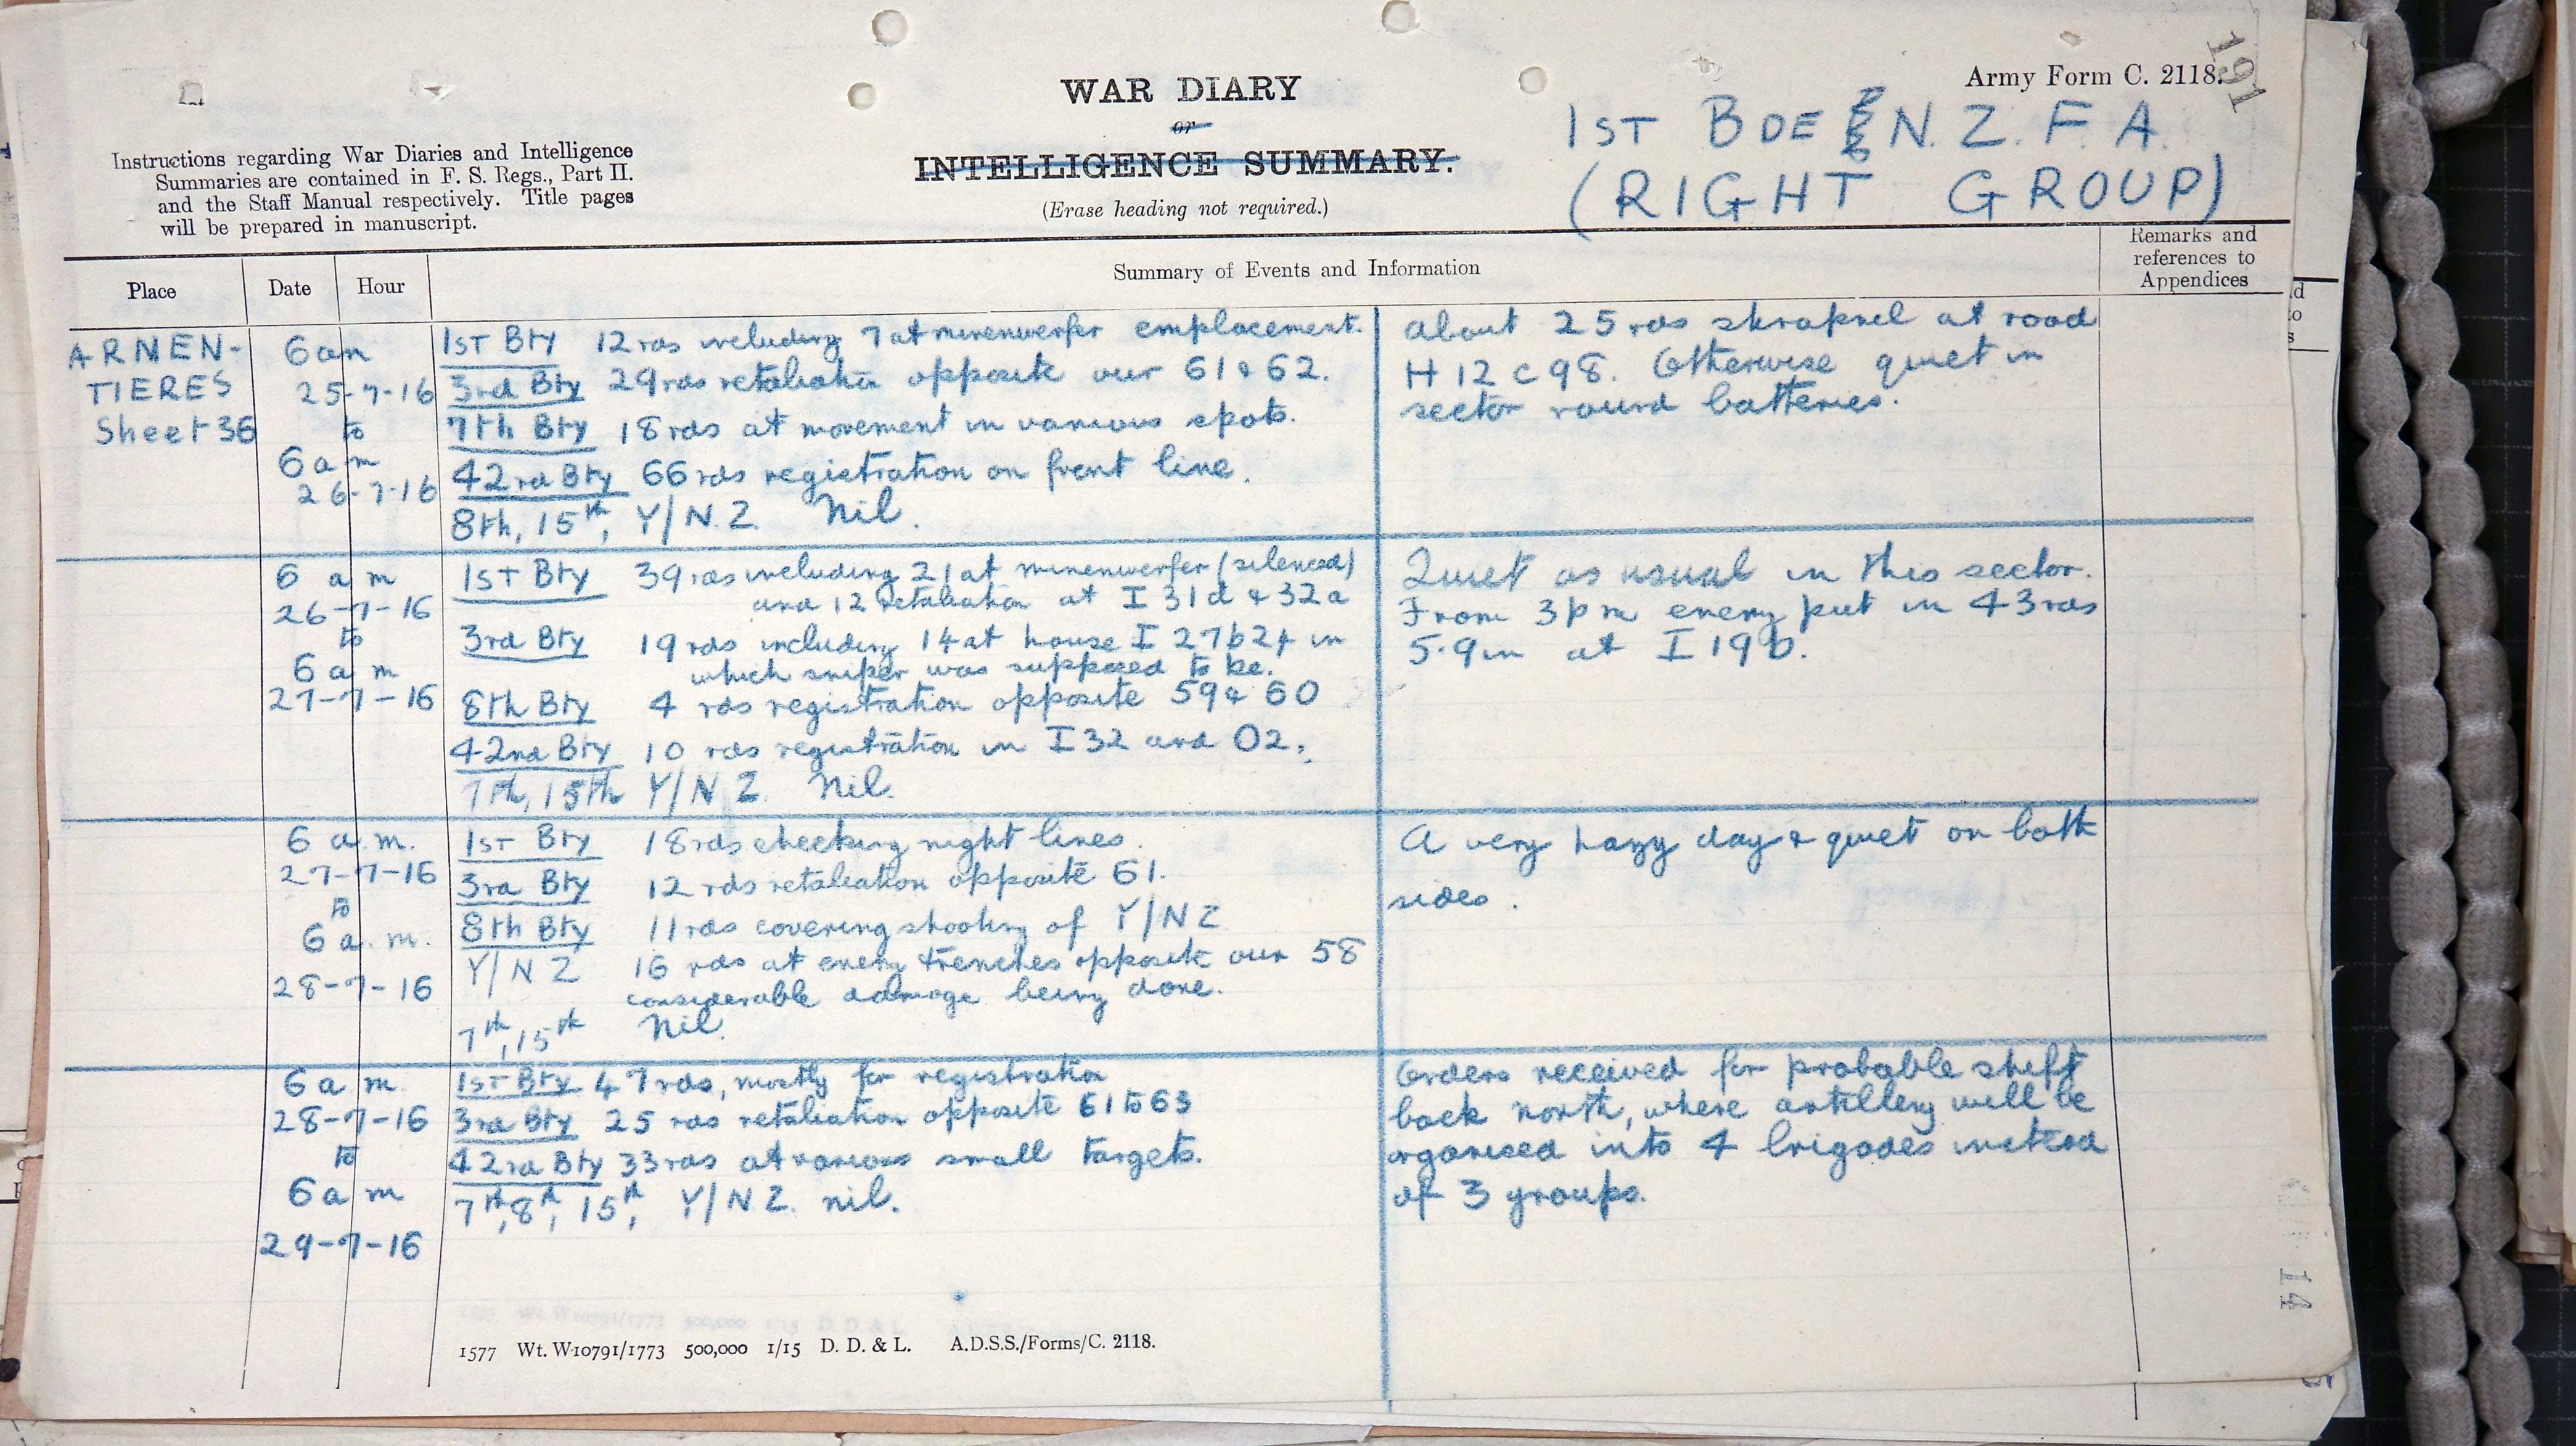 191
Army Form C. 2118.
WAR DIARY
or
INTELLIGENCE SUMMARY.
(Erase heading not required.)
Instructions regarding War Diaries and Intelligence
Summaries are contained in F. S. Regs., Part II.
and the Staff Manual respectively. Title pages
will be prepared in manuscript.
1ST BDE N. Z. F. A.
(RIGHT GROUP)
Place
Date
Hour
Summary of Events and Information
Remarks and
references to
Appendices
ARNEN-
TIERES
Sheet 36
6 am
25-7-16
to
6 am
26-7-16
1ST Bty 12 rds including 7 at minenwerfer emplacement.
3rd Bty 29 rds retaliation opposite our 61 & 62.
7th Bty 18 rds at movement in various spots.
42nd Bty 66 rds registration on front line.
8th, 15th, Y/N.Z. Nil.
About 25 rds shrapnel at road
H 12 c 98. Otherwise quiet in
sector round batteries.
6 am
26-7-16
to
6 am
27-7-16
1ST Bty 39 rds including 21 at minenwerfer (silenced)
and 12 retaliation at I 31d & 32a
3rd Bty 19 rds including 14 at house I 27b24 in
which sniper was supposed to be.
8th Bty 4 rds registration opposite 59 & 60
42nd Bty 10 rds registration in I 32 and O2.
7th, 15th Y/N Z. Nil.
Quiet as usual in this sector.
From 3 pm enemy put in 43 rds
5.9 in at I 19 b.
6 a.m.
27-7-16
to
6 a.m.
28-7-16
1ST Bty 18 rds checking night lines.
3rd Bty 12 rds retaliation opposite 61.
8th Bty 11 rds covering shooting of Y/NZ
Y/N Z 16 rds at enemy trenches opposite our 58
considerable damage being done.
7th, 15th Nil.
A very hazy day & quiet on both
sides.
6 a m.
28-7-16
to
6 a m
29-7-16
1ST Bty 47 rds, mostly for registration
3rd Bty 25 rds retaliation opposite 61 to 63
42nd Bty 33 rds at various small targets.
7th, 8th, 15th, Y/N Z. nil.
Orders received for probable shift
back north, where artillery will be
organised into 4 brigades instead
of 3 groups.
1577 Wt. W10791/1773 500,000 1/15 D. D. & L. A.D.S.S./Forms/C. 2118.
14